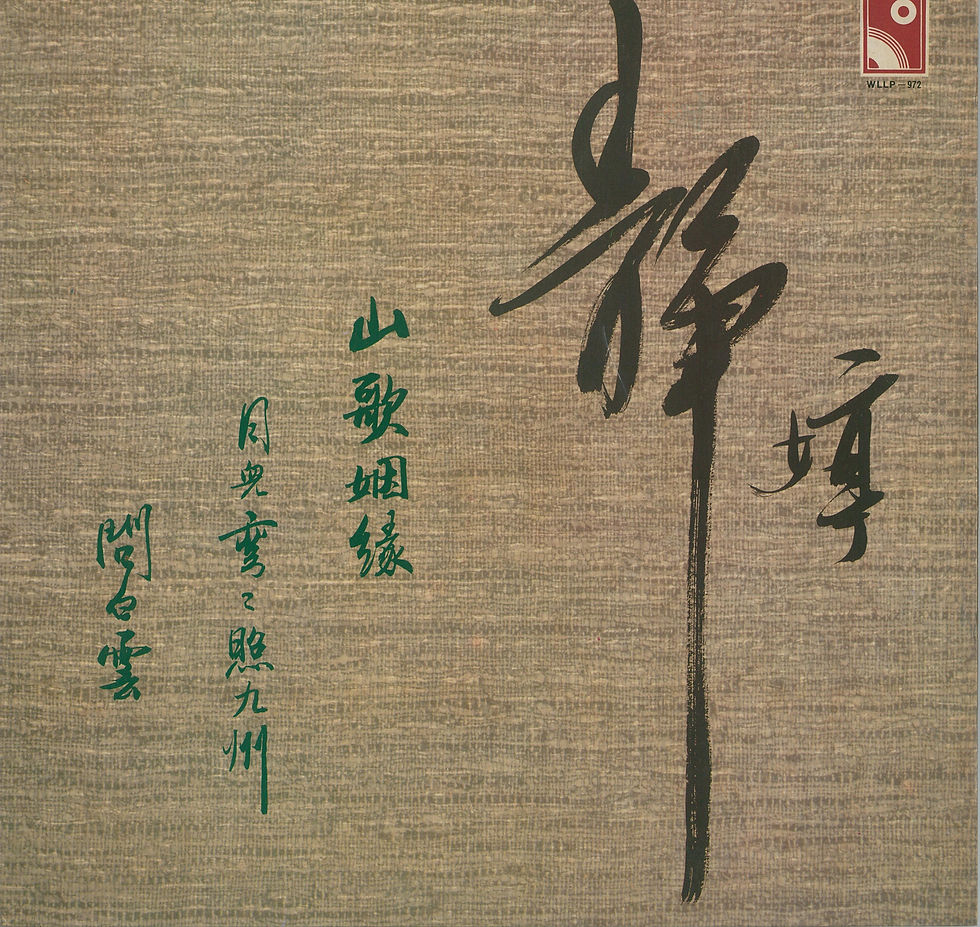 WLLP-972
靜婷
山歌姻緣
月兒彎〻照九州
問白雲